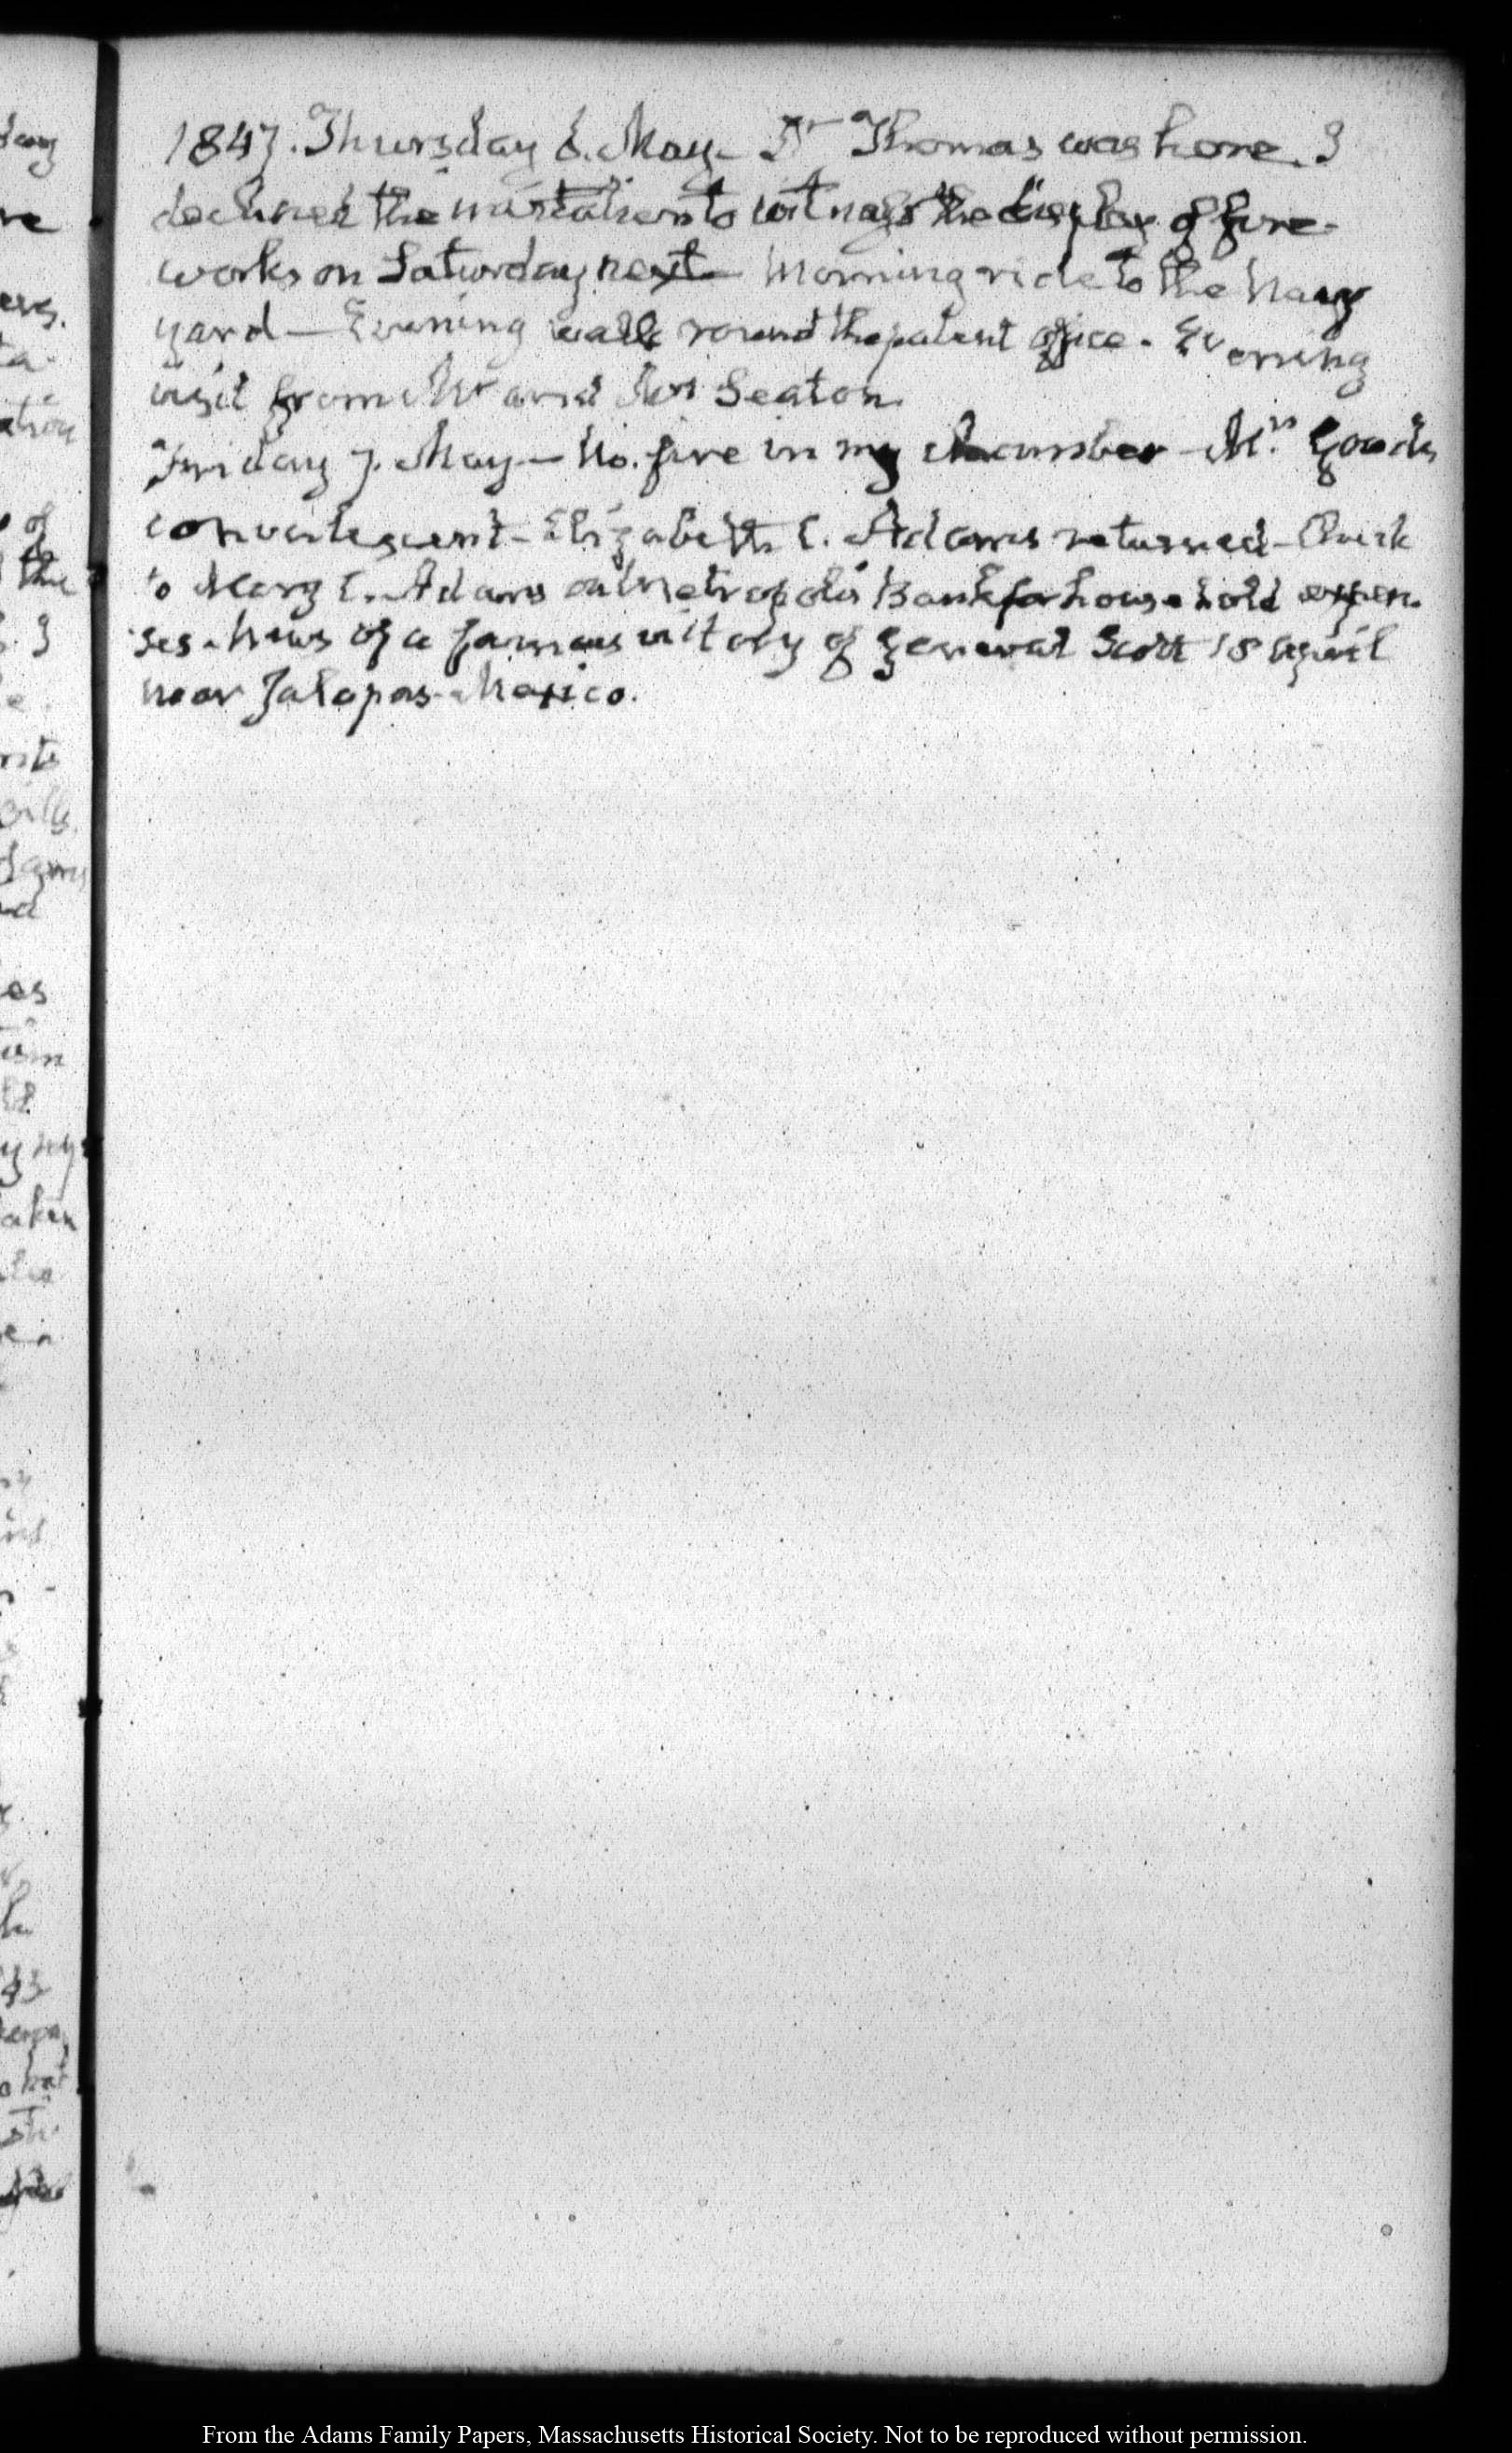 1847. Thursday 6. May – Dr Thomas was here. I
declined the invitation to witness the display of fire-
works on Saturday next – Morning ride to the Navy
yard – Evening walk round the patent office. Evening
visit from Mr and Mrs Seaton.
Friday 7. May – No. fire in my chamber – Mrs Goods
convalescent – Elizabeth C. Adams returned – Check
to Mary C. Adams on Metropolis Bank for household expen
ses. News of a famous victory of General Scott 18 April
near Jalapas – Mexico.
From the Adams Family Papers, Massachusetts Historical Society. Not to be reproduced without permission.